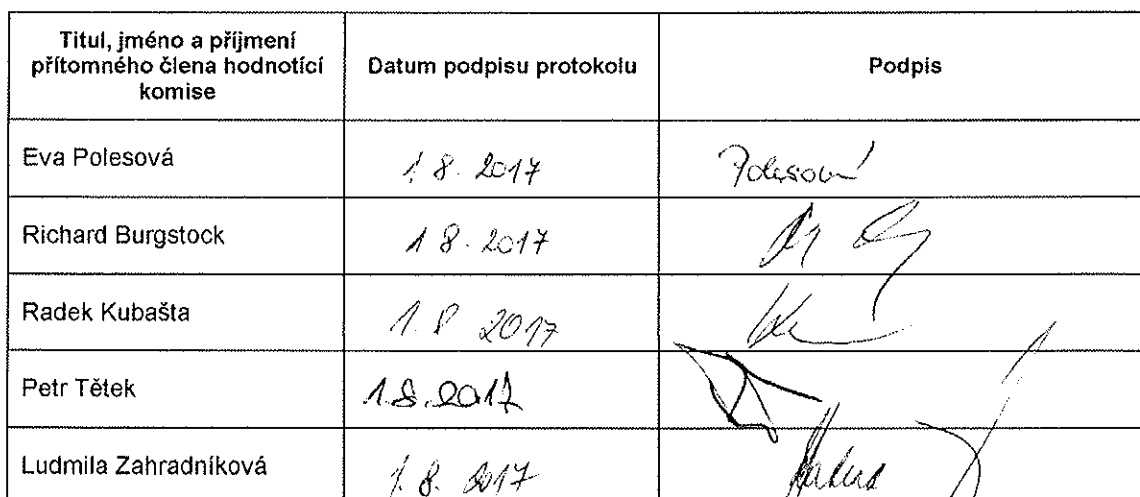 Titul, jméno a příjmení
přítomného člena hodnotící
komise
Datum podpisu protokolu
Podpis
Eva Polesová
1. 8. 2017
Polesová
Richard Burgstock
1 8. 2017
Radek Kubašta
1. 8 2017
Petr Tětek
1.8.2017
Ludmila Zahradníková
1. 8. 2017